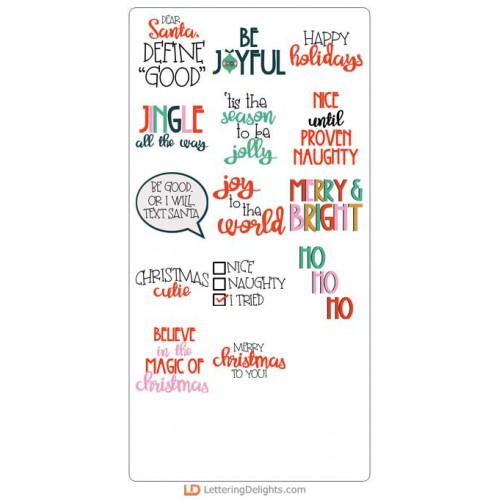 DEAR
Santa,
DEFINE
"GOOD"
BE
JOYFUL
HAPPY
holidays
JINGLE
all the way
'tis the
season
to be
jolly
NICE
until
PROVEN
NAUGHTY
BE GOOD,
OR I WILL
TEXT SANTA
joy
to the
world
MERRY &
BRIGHT
CHRISTMAS
cutie
NICE
NAUGHTY
I TRIED
HO
HO
HO
BELIEVE
in the
MAGIC OF
christmas
MERRY
christmas
TO YOU!
LD LetteringDelights.com